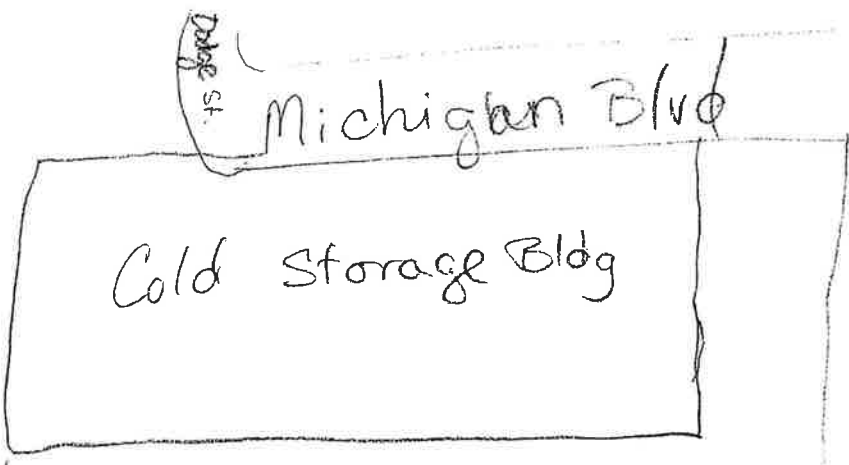 Dodge St.
Michigan Blvd
Cold Storage Bldg